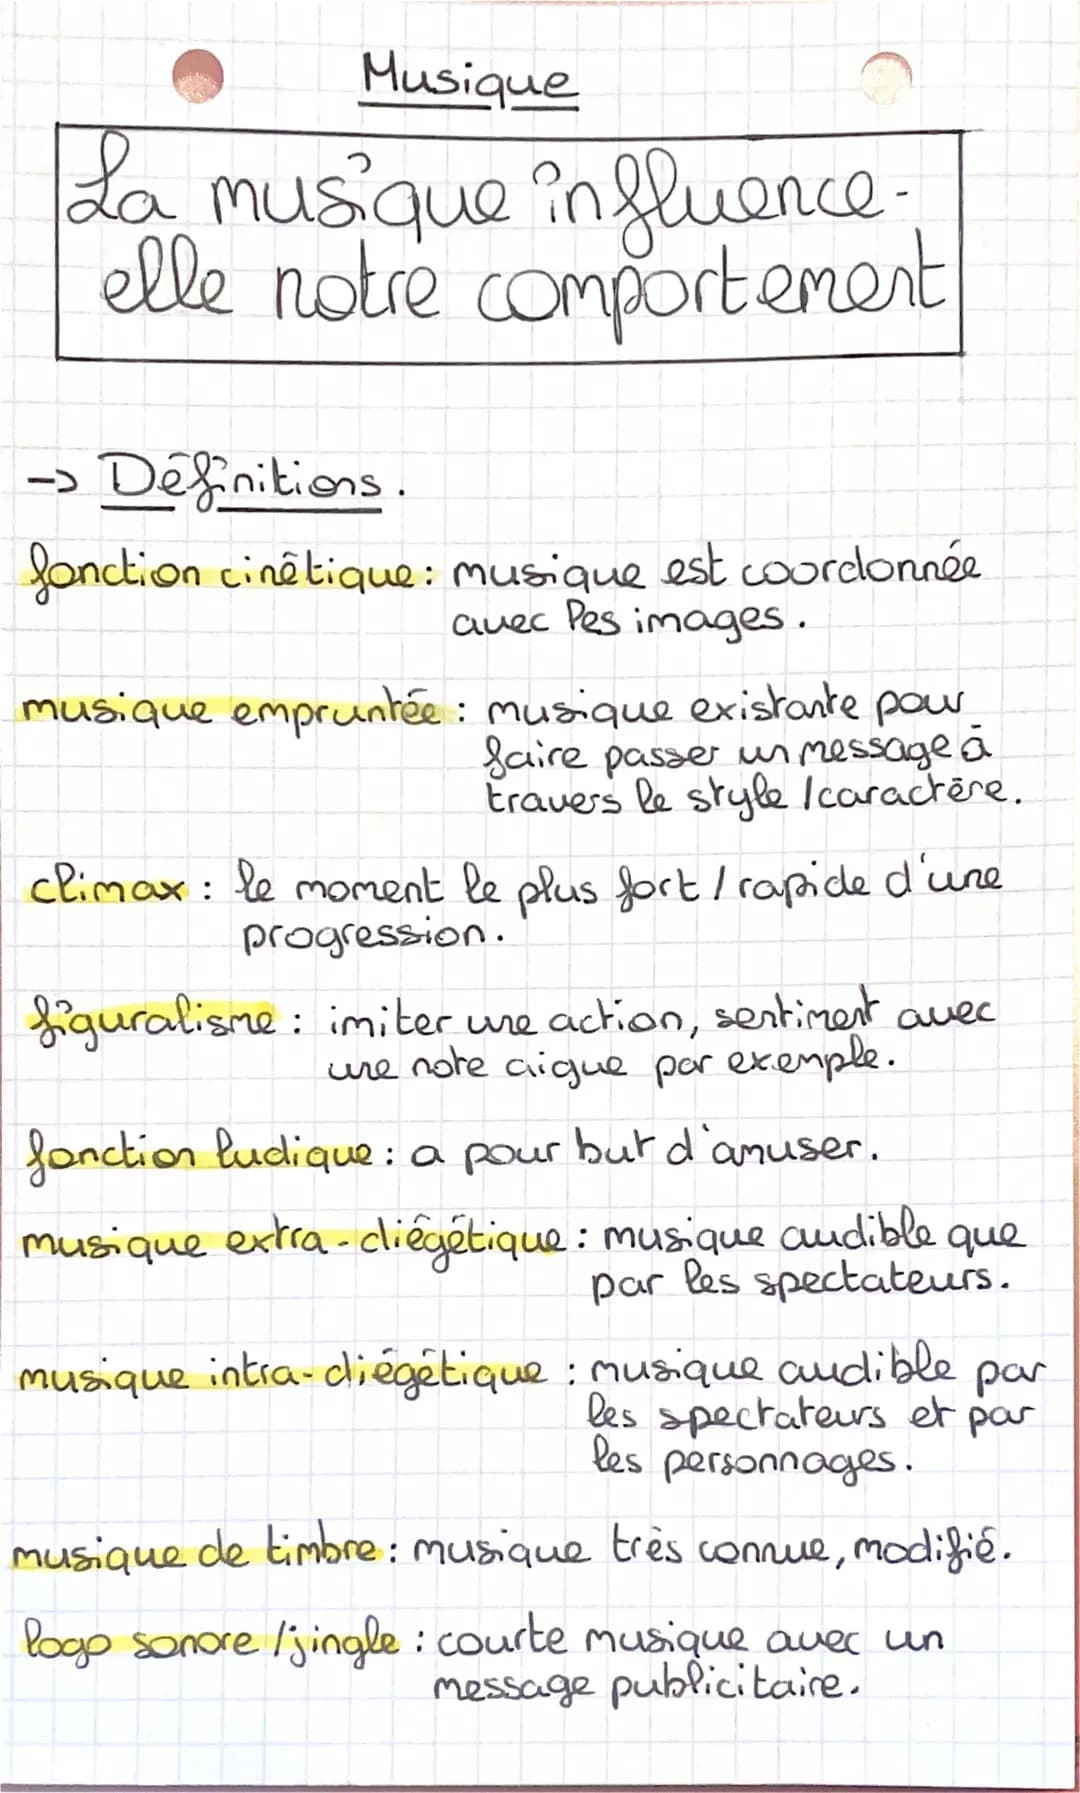 Musique
La musique influence-
elle notre comportement
-> Définitions.
fonction cinétique : musique est coordonnée
avec les images.
musique empruntée : musique existante pour
faire passer un message à
travers le style / caractère.
climax : le moment le plus fort / rapide d'une
progression.
figuralisme : imiter une action, sentiment avec
une note aigue par exemple.
fonction ludique : a pour but d'amuser.
musique extra-diégétique : musique audible que
par les spectateurs.
musique intra-diégétique : musique audible par
les spectateurs et par
les personnages.
musique de timbre : musique très connue, modifié.
logo sonore / jingle : courte musique avec un
message publicitaire.